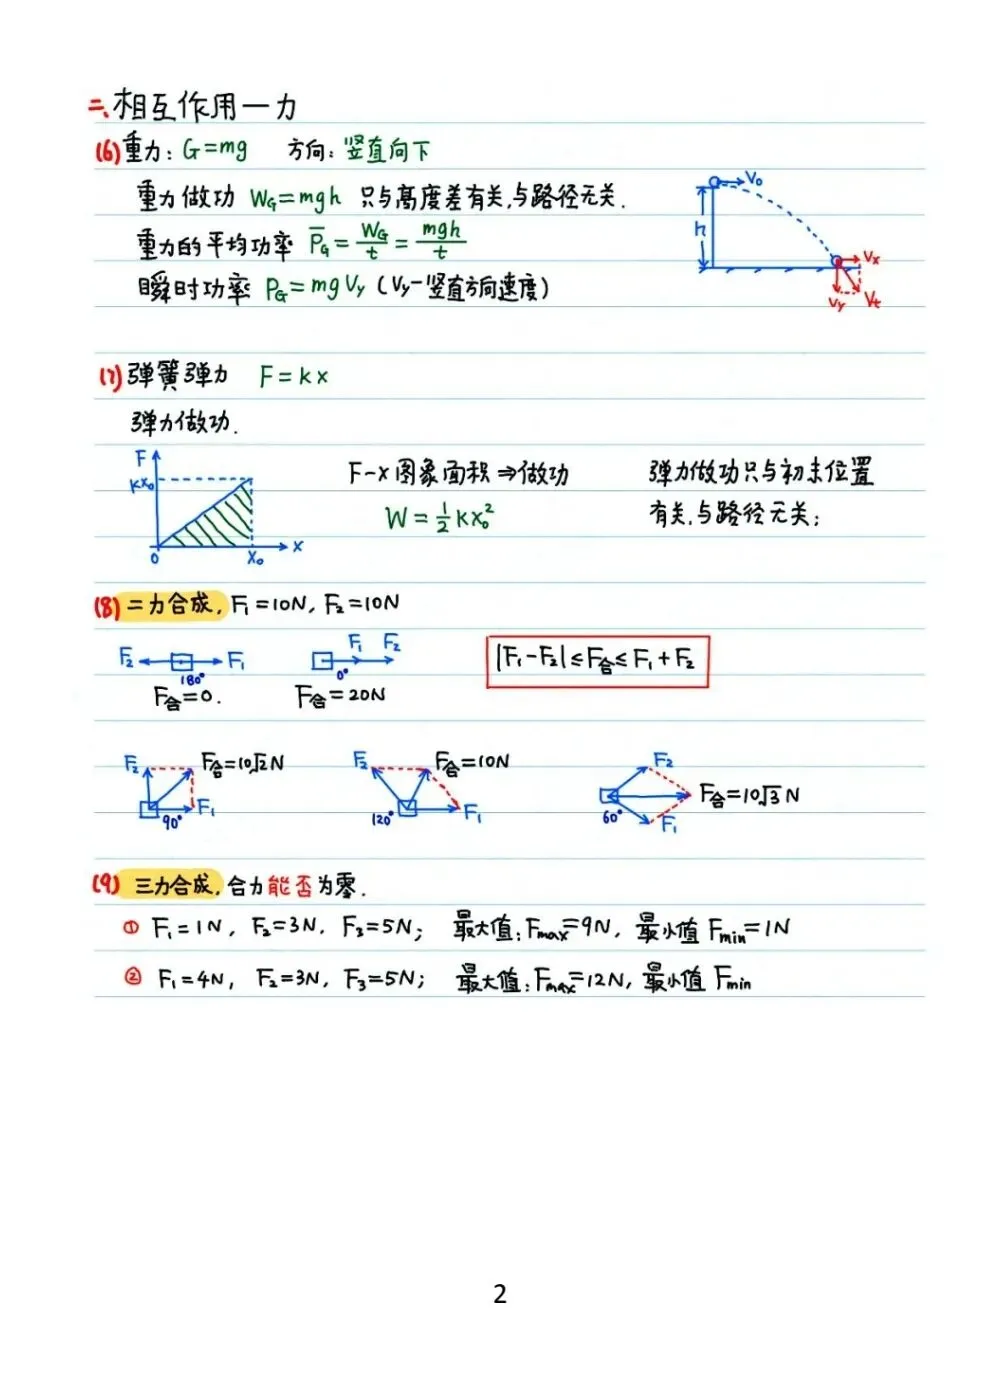 二、相互作用一力
(6)重力: G=mg 方向: 竖直向下
重力做功 W_G=mgh 只与高度差有关,与路径无关.
重力的平均功率 P̄_G=W_G/t=mgh/t
瞬时功率 P_G=mgVy (Vy-竖直方向速度)
V₀
h
Vx
Vy Vt
(7)弹簧弹力 F=kx
弹力做功.
F
kx₀
0 x₀ x
F-x图象面积⇒做功
W=½kx₀²
弹力做功只与初末位置
有关,与路径无关;
(8)二力合成, F₁=10N, F₂=10N
F₂ 180° F₁
F合=0.
F₁ F₂
0°
F合=20N
|F₁-F₂|≤F合≤F₁+F₂
F₂ F合=10√2N
90° F₁
F₂ F合=10N
120° F₁
F₂
F合=10√3N
60° F₁
(9) 三力合成, 合力能否为零.
① F₁=1N, F₂=3N, F₃=5N; 最大值: Fmax=9N, 最小值 Fmin=1N
② F₁=4N, F₂=3N, F₃=5N; 最大值: Fmax=12N, 最小值 Fmin
2